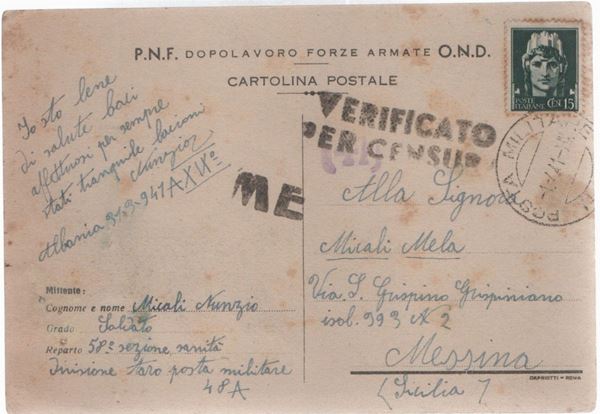 P.N.F. DOPOLAVORO FORZE ARMATE O.N.D.
CARTOLINA POSTALE
POSTE ITALIANE CEN 15
VERIFICATO
PER CENSUR
ME
POSTA MILITA
Io sto bene
di salute baci
affettuosi per sempre
stati tranquile bacioni
Nunzio
Albania 941 A XIXº
Alla Signora
Micali Mela
Via S. Crispino Crispiniano
isol. 393 N 2
Messina
(Sicilia)
Mittente:
Cognome e nome Micali Nunzio
Grado Soldato
Reparto 58ª sezione sanità
Divisione taro posta militare
48A
CAPRIOTTI - ROMA